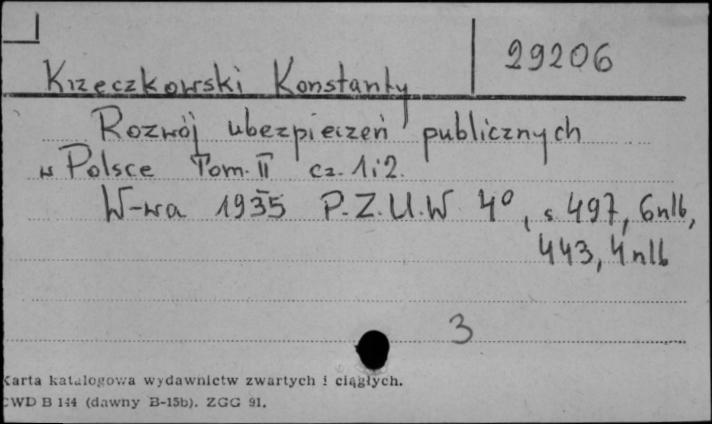 29206
Krzeczkowski Konstanty
Rozwój ubezpieczeń publicznych
w Polsce Tom. II cz. 1i2.
W-wa 1935 P.Z.U.W 4°, s 497, 6nlb,
443, 4nlb
3
Karta katalogowa wydawnictw zwartych i ciągłych.
CWD B 144 (dawny B-15b). ZGG 91.